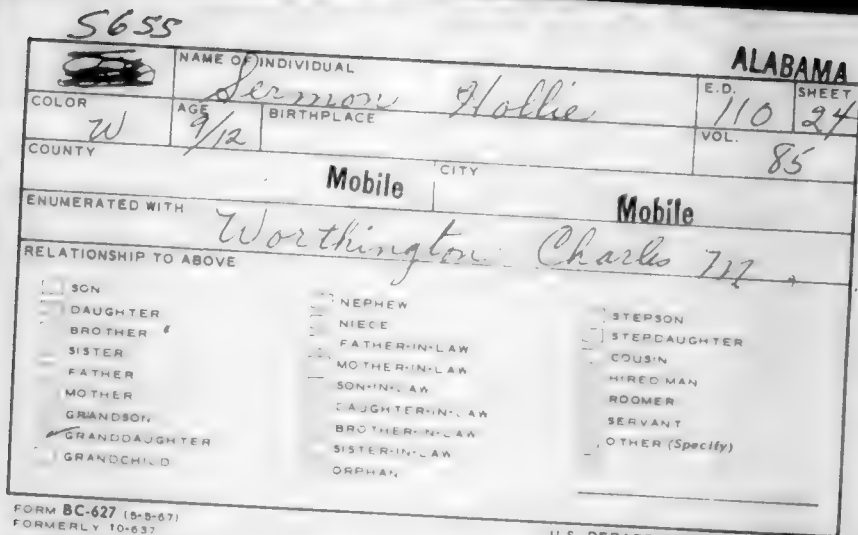 S655
ALABAMA
NAME OF INDIVIDUAL
Sermon Hollie
E.D.
110
SHEET
24
COLOR
W
AGE
9/12
BIRTHPLACE
VOL.
85
COUNTY
Mobile
CITY
Mobile
ENUMERATED WITH
Worthington Charles M.
RELATIONSHIP TO ABOVE
SON
DAUGHTER
BROTHER
SISTER
FATHER
MOTHER
GRANDSON
GRANDDAUGHTER
GRANDCHILD
NEPHEW
NIECE
FATHER-IN-LAW
MOTHER-IN-LAW
SON-IN-LAW
DAUGHTER-IN-LAW
BROTHER-IN-LAW
SISTER-IN-LAW
ORPHAN
STEPSON
STEPDAUGHTER
COUSIN
HIRED MAN
ROOMER
SERVANT
OTHER (Specify)
FORM BC-627 (5-5-67)
FORMERLY 10-637
U.S.